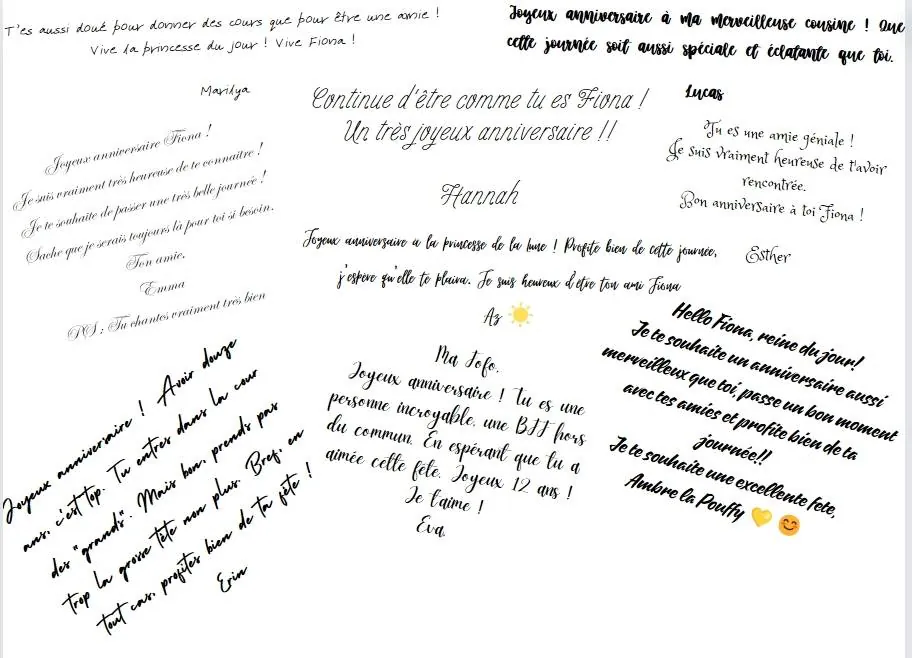 T'es aussi doué pour donner des cours que pour être une amie !
Vive la princesse du jour ! Vive Fiona !
Marilya
Joyeux anniversaire à ma merveilleuse cousine ! Que
cette journée soit aussi spéciale et éclatante que toi.
Lucas
Continue d'être comme tu es Fiona !
Un très joyeux anniversaire !!
Hannah
Joyeux anniversaire Fiona !
Je suis vraiment très heureuse de te connaitre !
Je te souhaite de passer une très belle journée !
Sache que je serais toujours là pour toi si besoin.
Ton amie,
Emma
PS : Tu chantes vraiment très bien
Tu es une amie géniale !
Je suis vraiment heureuse de t'avoir
rencontrée.
Bon anniversaire à toi Fiona !
Esther
Joyeux anniversaire a la princesse de la lune ! Profite bien de cette journée,
j'espère qu'elle te plaira. Je suis heureux d'être ton ami Fiona
Az ☀️
Joyeux anniversaire ! Avoir douze
ans, c'est top. Tu entres dans la cour
des "grands". Mais bon, prends pas
trop la grosse tête non plus. Bref, en
tout cas, profites bien de ta fête !
Erin
Ma Tofo,
Joyeux anniversaire ! Tu es une
personne incroyable, une BFF hors
du commun. En espérant que tu a
aimée cette fête. Joyeux 12 ans !
Je t'aime !
Eva.
Hello Fiona, reine du jour!
Je te souhaite un anniversaire aussi
merveilleux que toi, passe un bon moment
avec tes amies et profite bien de ta
journée!!
Je te souhaite une excellente fete,
Ambre la Pouffy 💛 😊